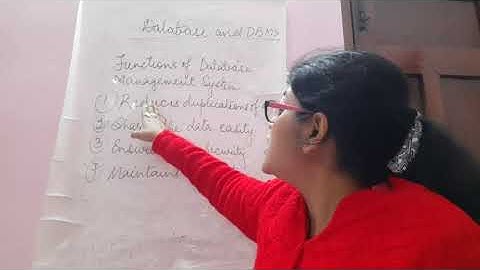 Database and DBMS
Functions of Database
Management System
① Reduces duplications of
② Share the data easily
③ Ensures security
④ Maintains